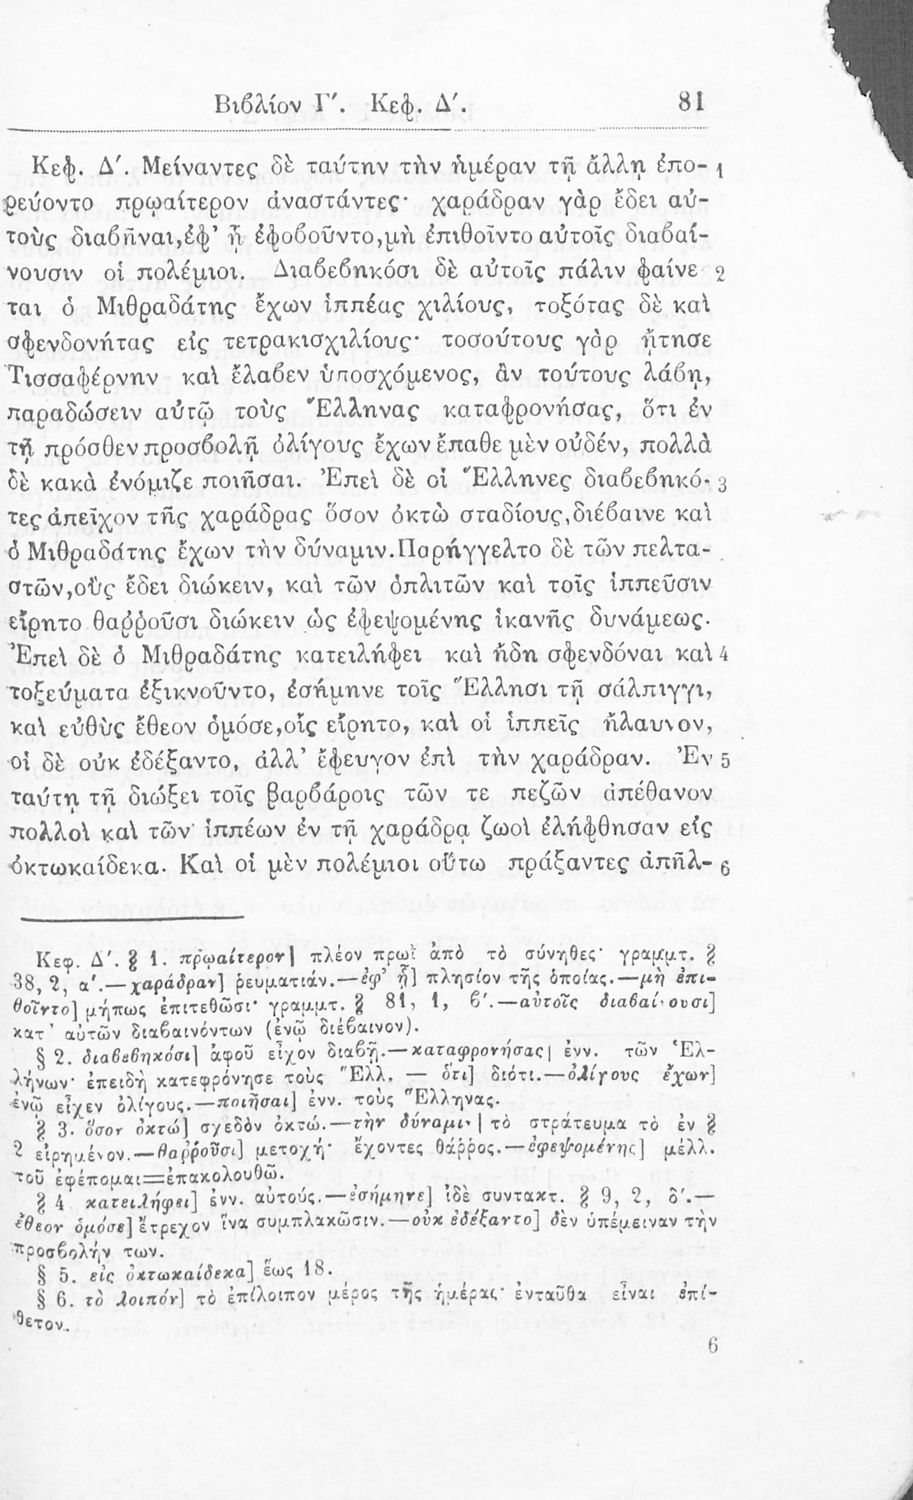 Βιβλίον Γ'. Κεφ. Δ'. 81
Κεφ. Δ'. Μείναντες δὲ ταύτην τὴν ἡμέραν τῇ ἄλλῃ ἐπο- 1
ρεύοντο πρῳαίτερον ἀναστάντες· χαράδραν γὰρ ἔδει αὐ-
τοὺς διαβῆναι, ἐφ' ᾗ ἐφοβοῦντο, μὴ ἐπιθοῖντο αὐτοῖς διαβαί-
νουσιν οἱ πολέμιοι. Διαβεβηκόσι δὲ αὐτοῖς πάλιν φαίνε 2
ται ὁ Μιθραδάτης ἔχων ἱππέας χιλίους, τοξότας δὲ καὶ
σφενδονήτας εἰς τετρακισχιλίους· τοσούτους γὰρ ᾔτησε
Τισσαφέρνην καὶ ἔλαβεν ὑποσχόμενος, ἂν τούτους λάβῃ,
παραδώσειν αὐτῷ τοὺς Ἕλληνας καταφρονήσας, ὅτι ἐν
τῇ πρόσθεν προσβολῇ ὀλίγους ἔχων ἔπαθε μὲν οὐδέν, πολλὰ
δὲ κακὰ ἐνόμιζε ποιῆσαι. Ἐπεὶ δὲ οἱ Ἕλληνες διαβεβηκό- 3
τες ἀπεῖχον τῆς χαράδρας ὅσον ὀκτὼ σταδίους, διέβαινε καὶ
ὁ Μιθραδάτης ἔχων τὴν δύναμιν. Παρήγγελτο δὲ τῶν πελτα-
στῶν, οὓς ἔδει διώκειν, καὶ τῶν ὁπλιτῶν καὶ τοῖς ἱππεῦσιν
εἴρητο θαῤῥοῦσι διώκειν ὡς ἐφεψομένης ἱκανῆς δυνάμεως.
Ἐπεὶ δὲ ὁ Μιθραδάτης κατειλήφει καὶ ἤδη σφενδόναι καὶ 4
τοξεύματα ἐξικνοῦντο, ἐσήμηνε τοῖς Ἕλλησι τῇ σάλπιγγι,
καὶ εὐθὺς ἔθεον ὁμόσε, οἷς εἴρητο, καὶ οἱ ἱππεῖς ἤλαυνον,
οἱ δὲ οὐκ ἐδέξαντο, ἀλλ' ἔφευγον ἐπὶ τὴν χαράδραν. Ἐν 5
ταύτῃ τῇ διώξει τοῖς βαρβάροις τῶν τε πεζῶν ἀπέθανον
πολλοὶ καὶ τῶν ἱππέων ἐν τῇ χαράδρᾳ ζωοὶ ἐλήφθησαν εἰς
ὀκτωκαίδεκα. Καὶ οἱ μὲν πολέμιοι οὕτω πράξαντες ἀπῆλ- 6
Κεφ. Δ'. § 1. πρῳαίτερον] πλέον πρωῒ ἀπὸ τὸ σύνηθες· γραμμτ. §
38, 2, α'.—χαράδραν] ῥευματιάν.—ἐφ' ᾗ] πλησίον τῆς ὁποίας.—μὴ ἐπι-
θοῖντο] μήπως ἐπιτεθῶσι· γραμμτ. § 81, 1, β'.—αὐτοῖς διαβαί·ουσι]
κατ' αὐτῶν διαβαινόντων (ἐνῷ διέβαινον).
§ 2. διαβεβηκόσι] ἀφοῦ εἶχον διαβῆ.—καταφρονήσας] ἐνν. τῶν Ἑλ-
λήνων· ἐπειδὴ κατεφρόνησε τοὺς Ἕλλ. — ὅτι] διότι.—ὀλίγους ἔχων]
ἐνῷ εἶχεν ὀλίγους.—ποιῆσαι] ἐνν. τοὺς Ἕλληνας.
§ 3. ὅσον ὀκτώ] σχεδὸν ὀκτώ.—τὴν δύναμι·] τὸ στράτευμα τὸ ἐν §
2 εἰρημένον.—θαῤῥοῦσι] μετοχή· ἔχοντες θάῤῥος.—ἐφεψομένης] μέλλ.
τοῦ ἐφέπομαι=ἐπακολουθῶ.
§ 4 κατειλήφει] ἐνν. αὐτούς.—ἐσήμηνε] ἰδὲ συντακτ. § 9, 2, δ'.—
ἔθεον ὁμόσε] ἔτρεχον ἵνα συμπλακῶσιν.—οὐκ ἐδέξαντο] δὲν ὑπέμειναν τὴν
προσβολήν των.
§ 5. εἰς ὀκτωκαίδεκα] ἕως 18.
§ 6. τὸ λοιπόν] τὸ ἐπίλοιπον μέρος τῆς ἡμέρας· ἐνταῦθα εἶναι ἐπί-
θετον.
6